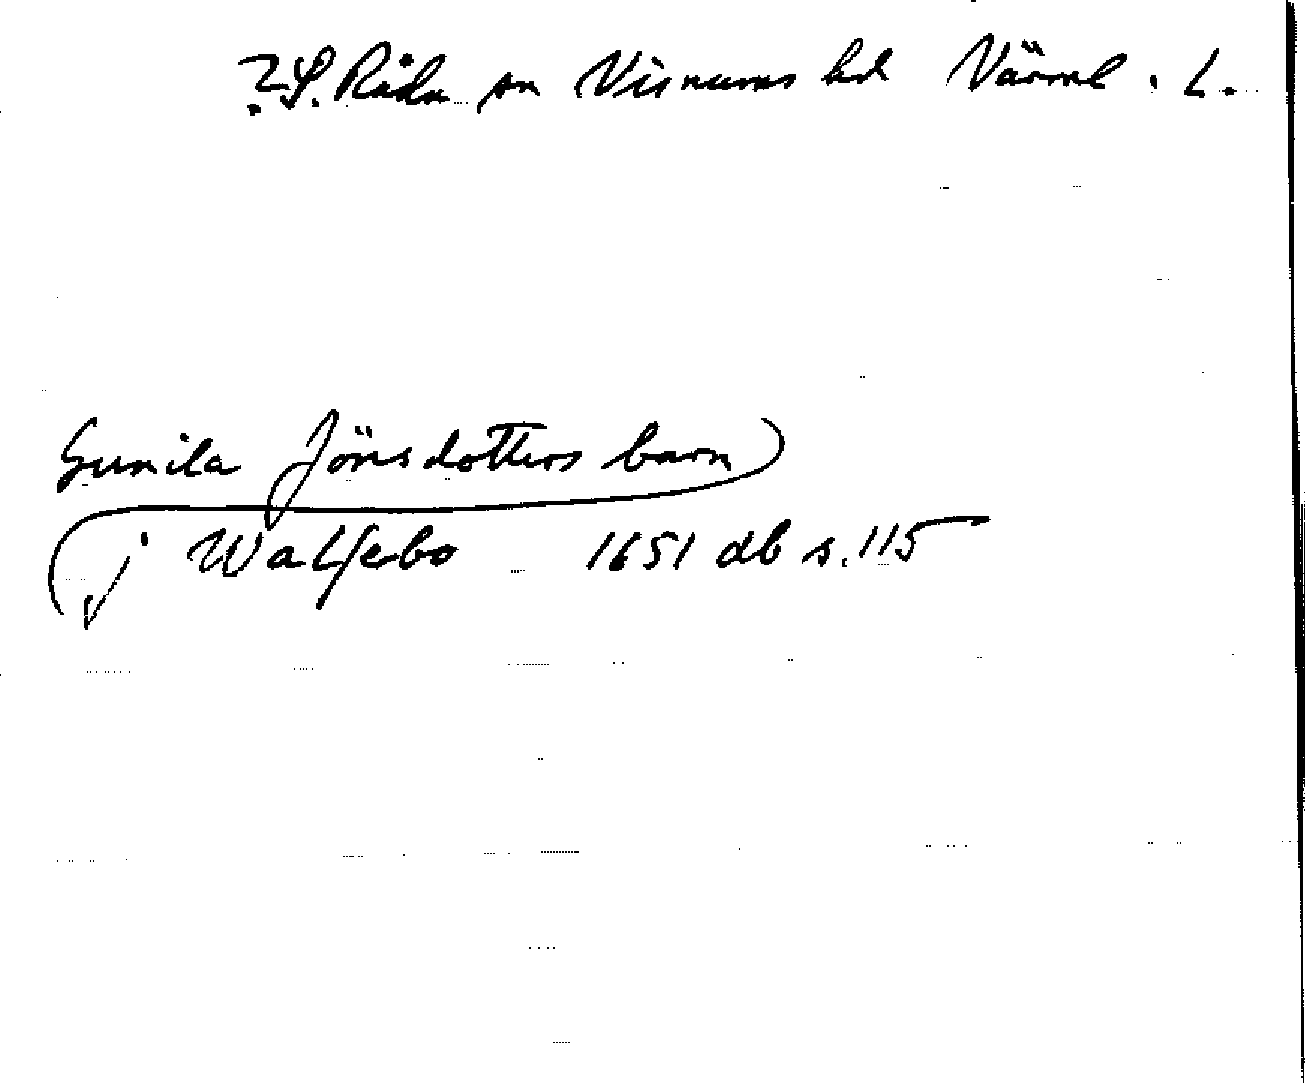 ? S. Råda sn Visnums hd Värml. L.
Gunila Jönsdotters barn)
(j Walsebo 1651 db s. 115